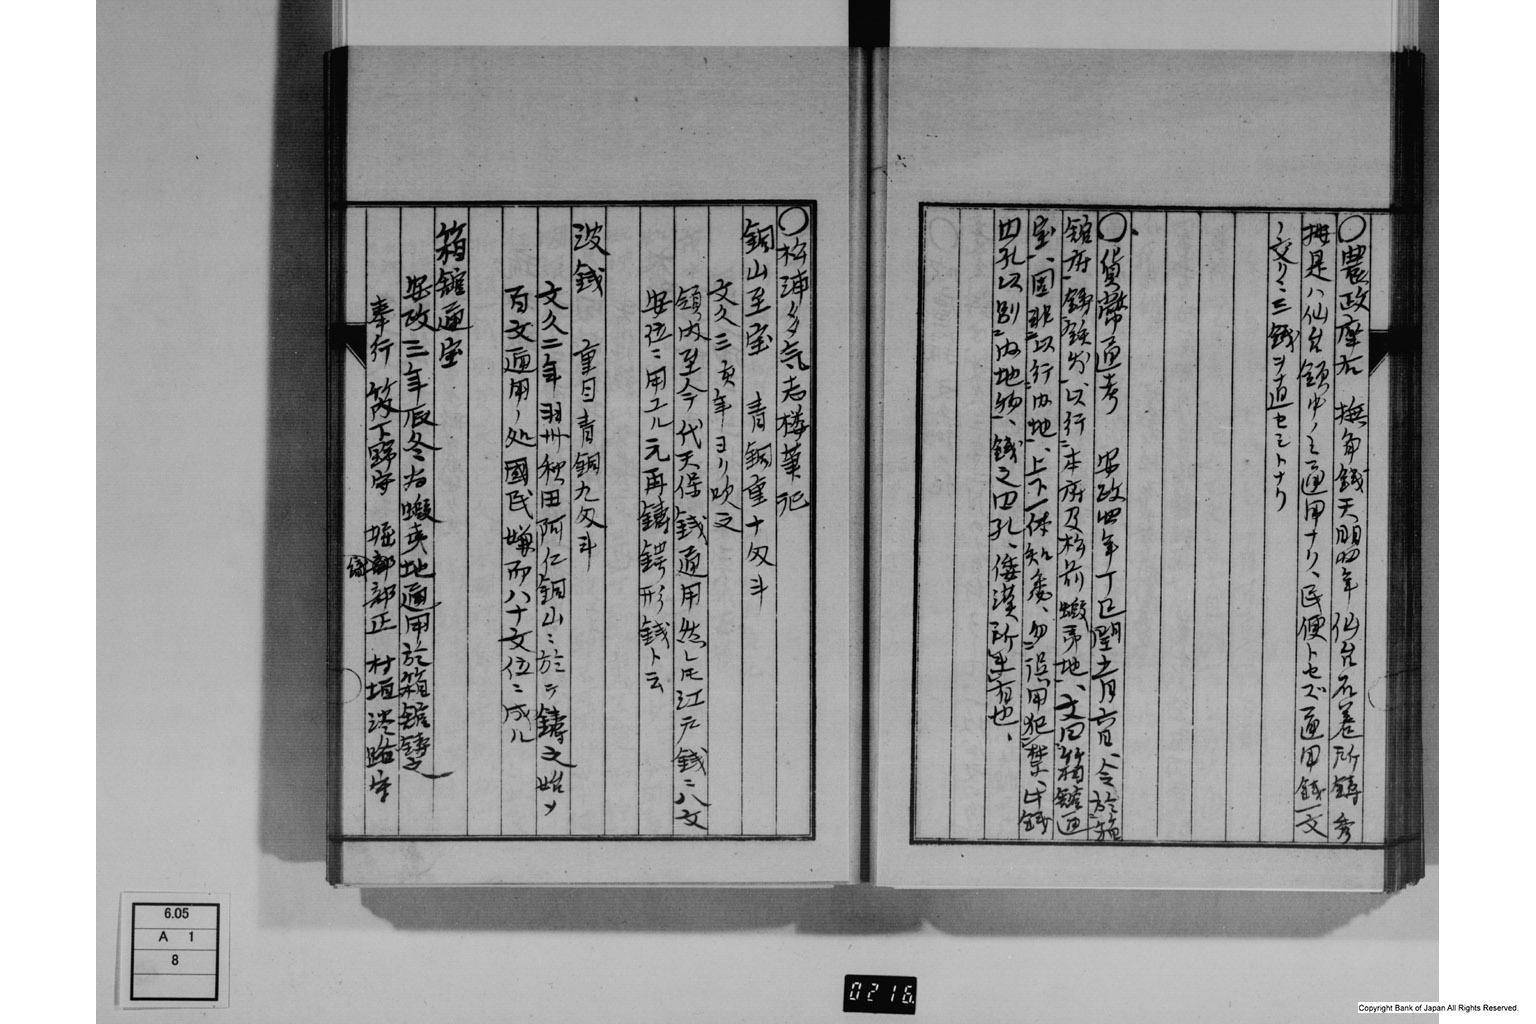 〇農政座右 撫角銭天明四年 仙台石巻所鋳 秀
按是ハ仙台領中ノミ通用ナリ、民便トセズ通用銭一文
ノ交リニ三銭ヲ遣セシトナリ
〇貨幣通考 安政四年丁巳閏五月六日、令於箱
舘府鋳銭、以行本府及松前蝦夷地、文曰箱舘通
宝、圓郭以行内地、上下一体知悉、勿誤用犯禁、此銭
円孔以別内地物、銭之円孔、倭漢所未有也、
〇松浦多気志楼筆記
銅山至宝 青銅重十匁斗
文久三亥年ヨリ吹之
領内至今代天保銭通用然レ𪜈江戸銭ニ八文
安位ニ用ユル元再鋳鍔形銭ト云
波銭 重目青銅九匁斗
文久二年羽州秋田阿仁銅山ニ於テ鋳之始メ
百文通用ノ処國民嫌而八十文位ニ成ル
箱舘通宝
安政三年辰冬為蝦夷地通用於箱舘鋳之
奉行 竹下錦守 堀部部正 村垣淡路守
6.05
A 1
8
0216.
Copyright Bank of Japan All Rights Reserved.